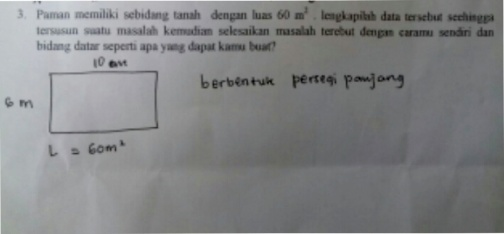 3. Paman memiliki sebidang tanah dengan luas 60 m². lengkapilah data tersebut seehingga
tersusun suatu masalah kemudian selesaikan masalah terebut dengan caramu sendiri dan
bidang datar seperti apa yang dapat kamu buat?
10 cm
berbentuk persegi panjang
6 m
L = 60m²